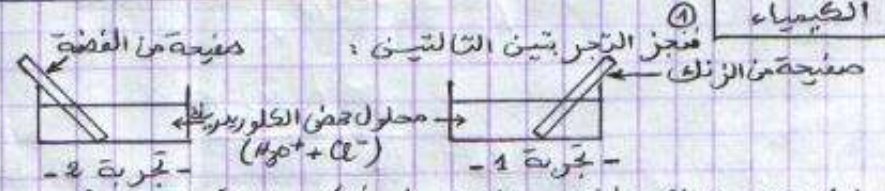 الكيمياء
① ننجز التجربتين التاليتين :
صفيحة من الزنك
صفيحة من الفضة
محلول حمض الكلوريدريك
(H₃O⁺ + Cl⁻)
- تجربة 1 -
- تجربة 2 -